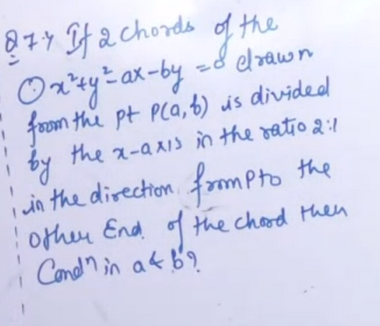 Q 7.> If 2 chords of the
⊙ x²+y²-ax-by =0 drawn
from the pt P(a,b) is divided
by the x-axis in the ratio 2:1
in the direction from P to the
other End of the chord then
Condⁿ in a & b?